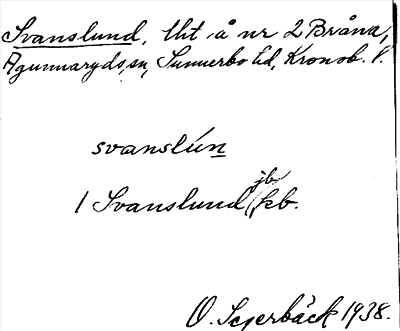 Svanslund, lht å nr 2 Bråna,
Agunnaryds sn, Sunnerbo hd, Kronob. l.
svanslún
1 Svanslund jb/kb.
O. Segerbäck 1938.